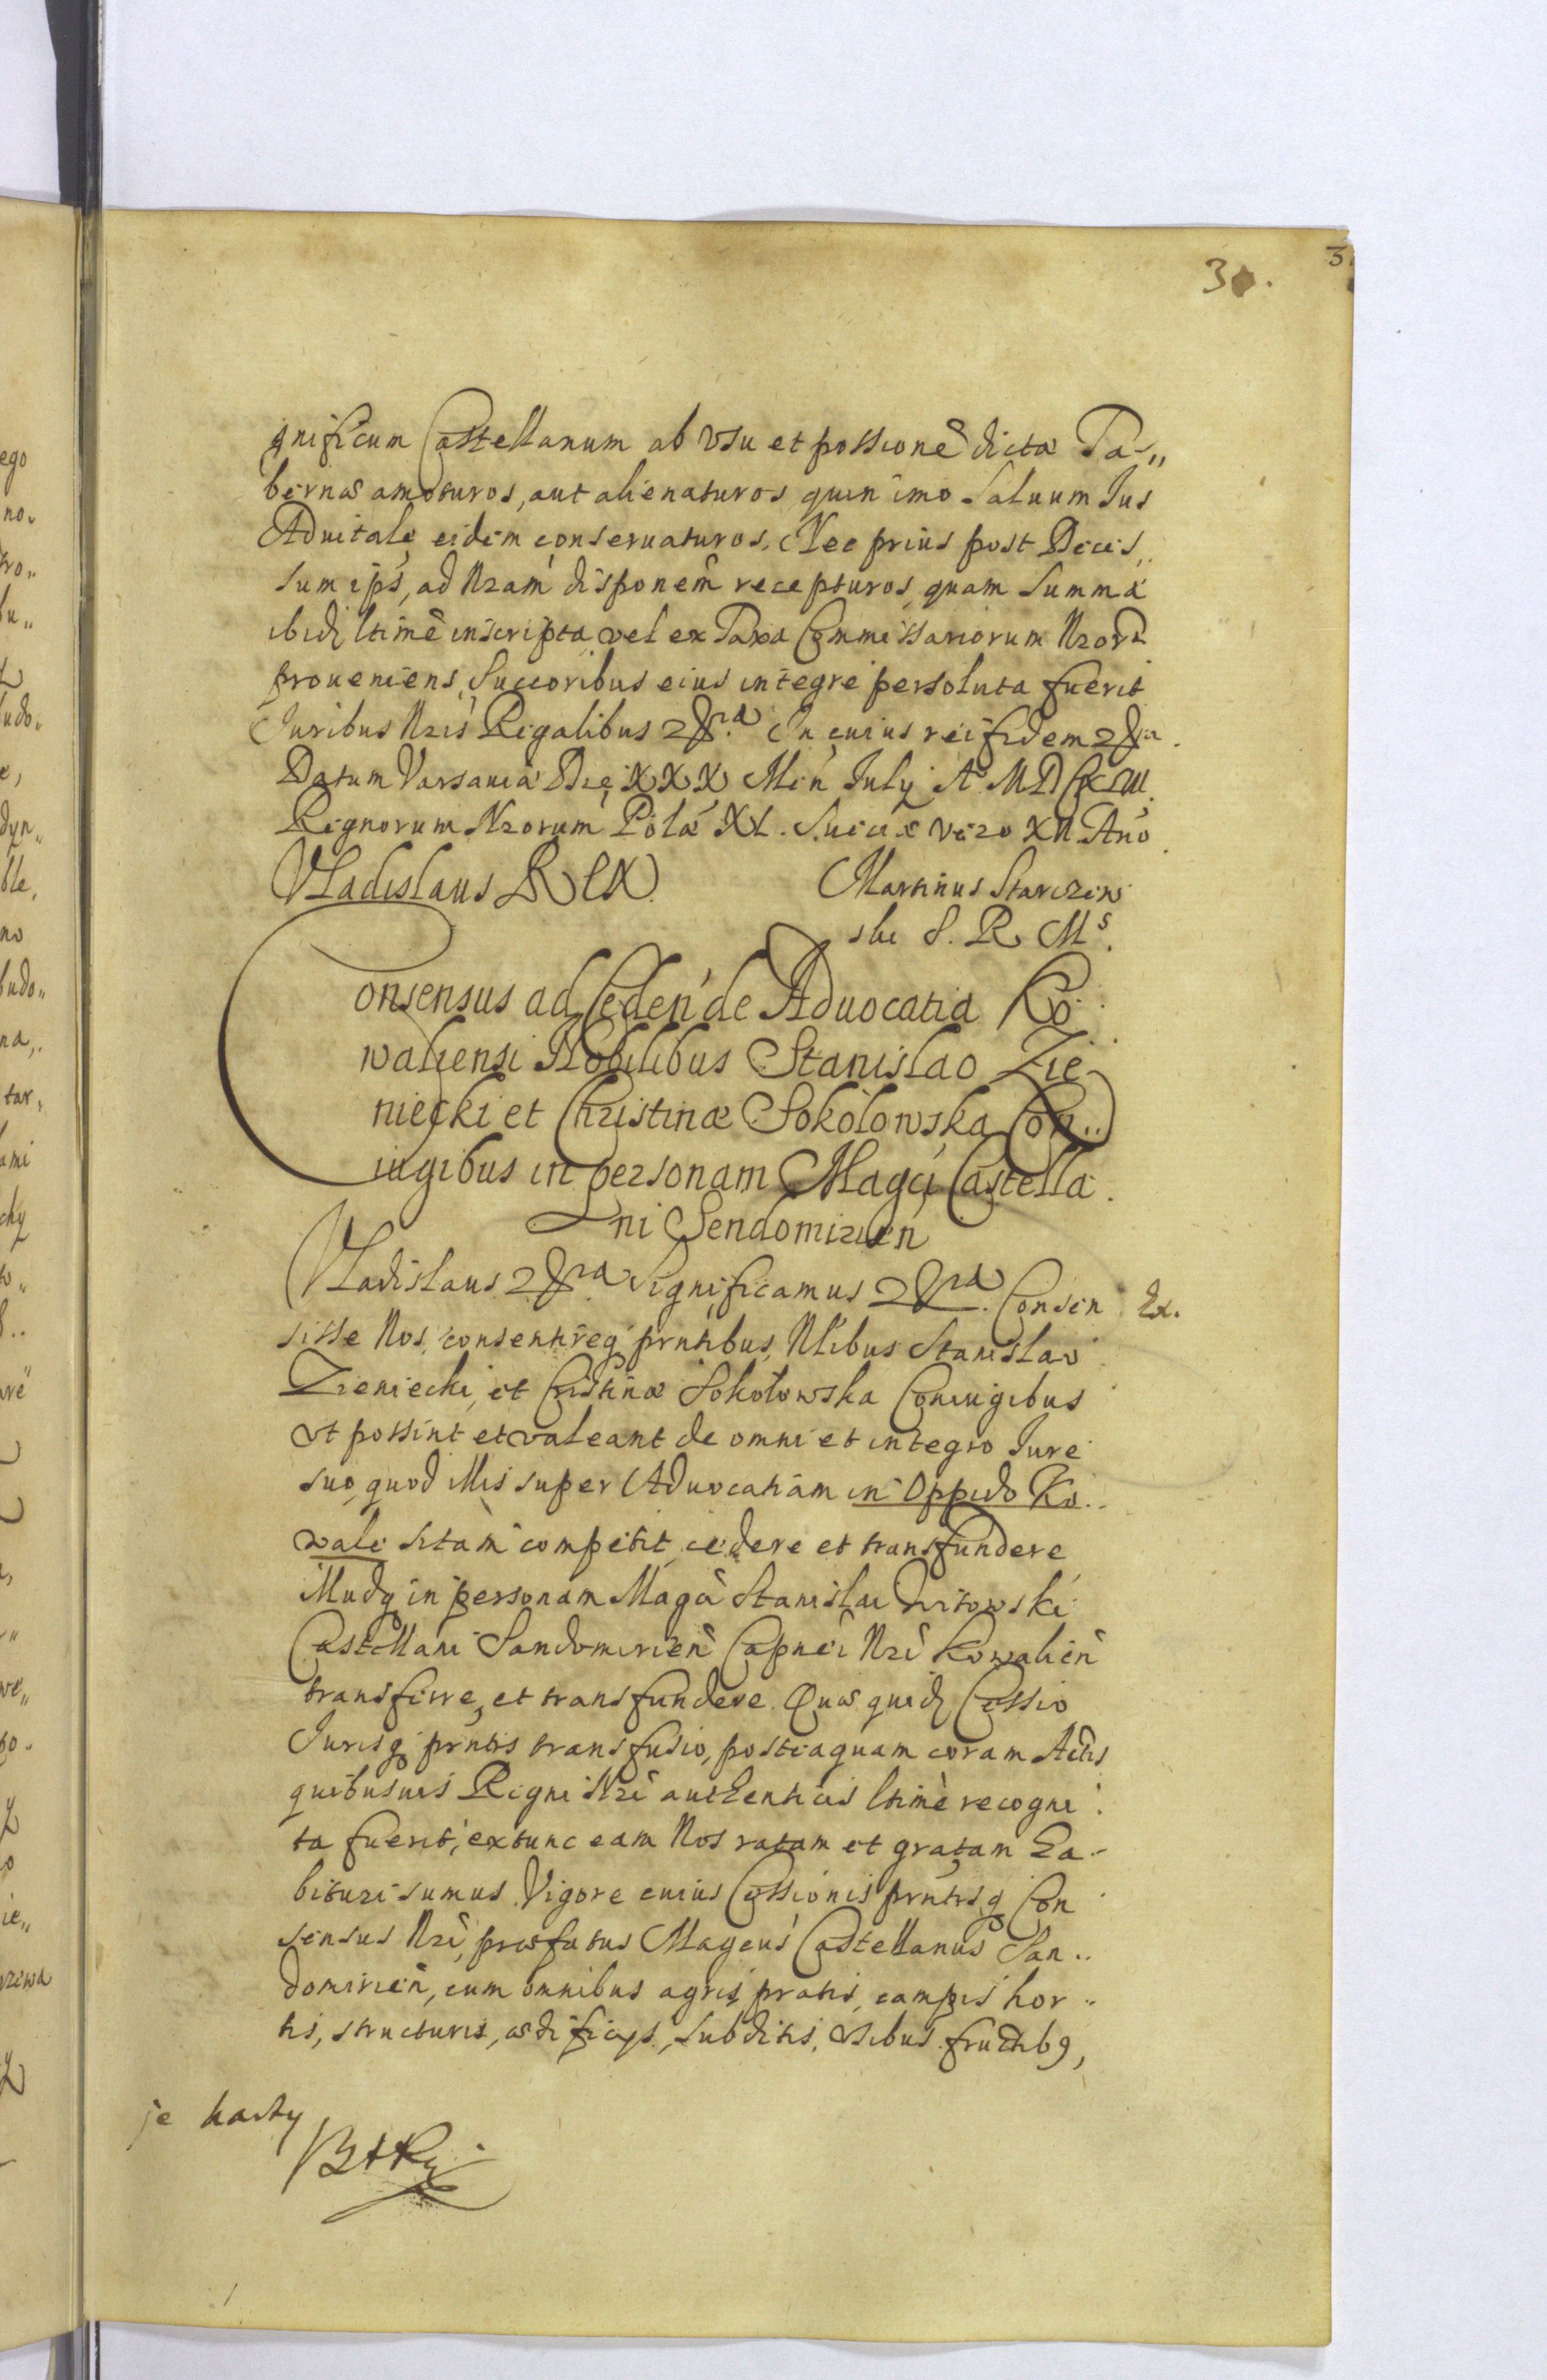 30.
gnificum Castellanum ab Usu et possione dictæ Ta„
bernæ amoturos, aut alienaturos quin imo Saluum Jus
Aduitale eidem conseruaturos. Nec prius post Deces„
sum ips, ad Nram disponem recepturos, quam Summa
ibid ltime inscripta vel ex Taxa Commissariorum Nror
proueniens, Succoribus eius integre persoluta fuerit
Juribus Nris Regalibus &ra In cuius rei fidem &ra.
Datum Varsauiæ Die XXX Men July A MDC
Regnorum Nrorum Polæ XI. Sueciæ vero XII Ano
Vladislaus Rex. Martinus Starczew
ski S. R. Ms.
Consensus ad Ceden de Aduocatia Ko
waliensi Nobilibus Stanislao Zie
niecki et Christinæ Sokołowska Con..
iugibus in personam Magci Castella
ni Sendomirien
Vladislaus &ra Significamus &ra. Consen Ex.
sisse Nos, consentireq prntibus, Nlibus Stanislao
Zieniecki, et Cristinæ Sokołowska Coniugibus
Ut possint et valeant de omni et integro Jure
suo, quod illis super Aduocatiam in Oppido Ko..
wale sitam competit cedere et transfundere
illudq in personam Magci Stanislai Witowski
Castellani Sandomirien Capnei Nri Kowalien
transferre, et transfundere. Quæ quid Cessio
Jurisq prntis transfusio, posteaquam coram Actis
quibusuis Regni Nri authenticis ltime recogni
ta fuerit, extunc eam Nos ratam et gratam ha-
bituri sumus Vigore cuius Cessionis prntisq Con
sensus Nri, præfatus Magcus Castellanus San..
domirien, cum omnibus agris pratis, campis hor..
tis, structuris, ædificijs, subditis, Usibus fructib9,
je karty